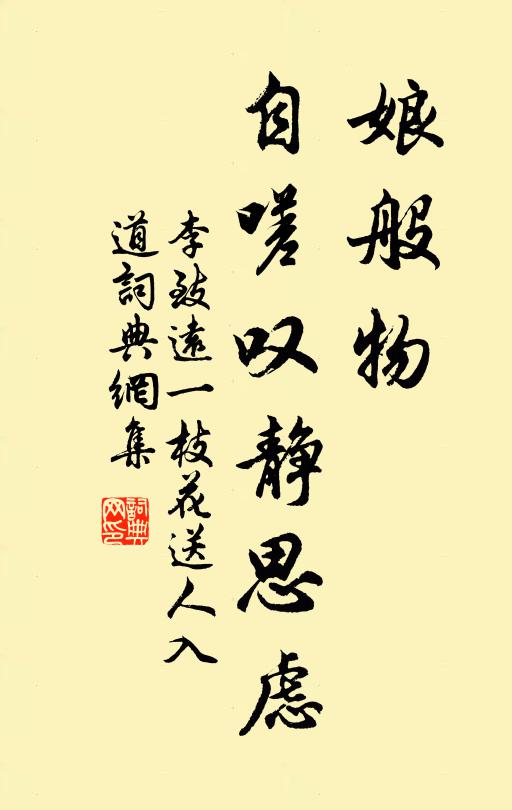 娘般物
自嗟叹静思虑
李致遠一枝花送人入
道詞典網集
詞典
网印